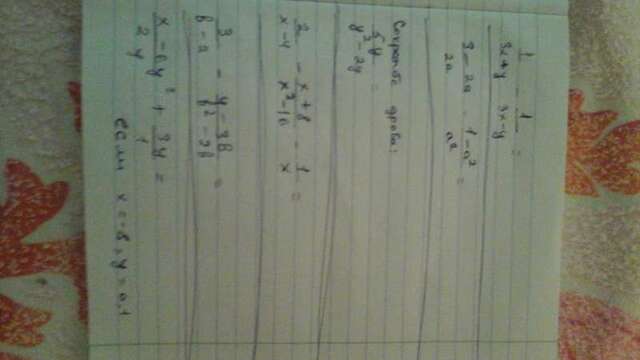 1/(3x+y) - 1/(3x-y) =
(3-2a)/2a - (1-a²)/a² =
Сократите дробь:
5y/(y²-2y) =
2/(x-4) - (x+8)/(x²-16) - 1/x =
3/(b-2) - =
(x-6y²)/2y + 3y/1 =
если x=-8, y=0,1